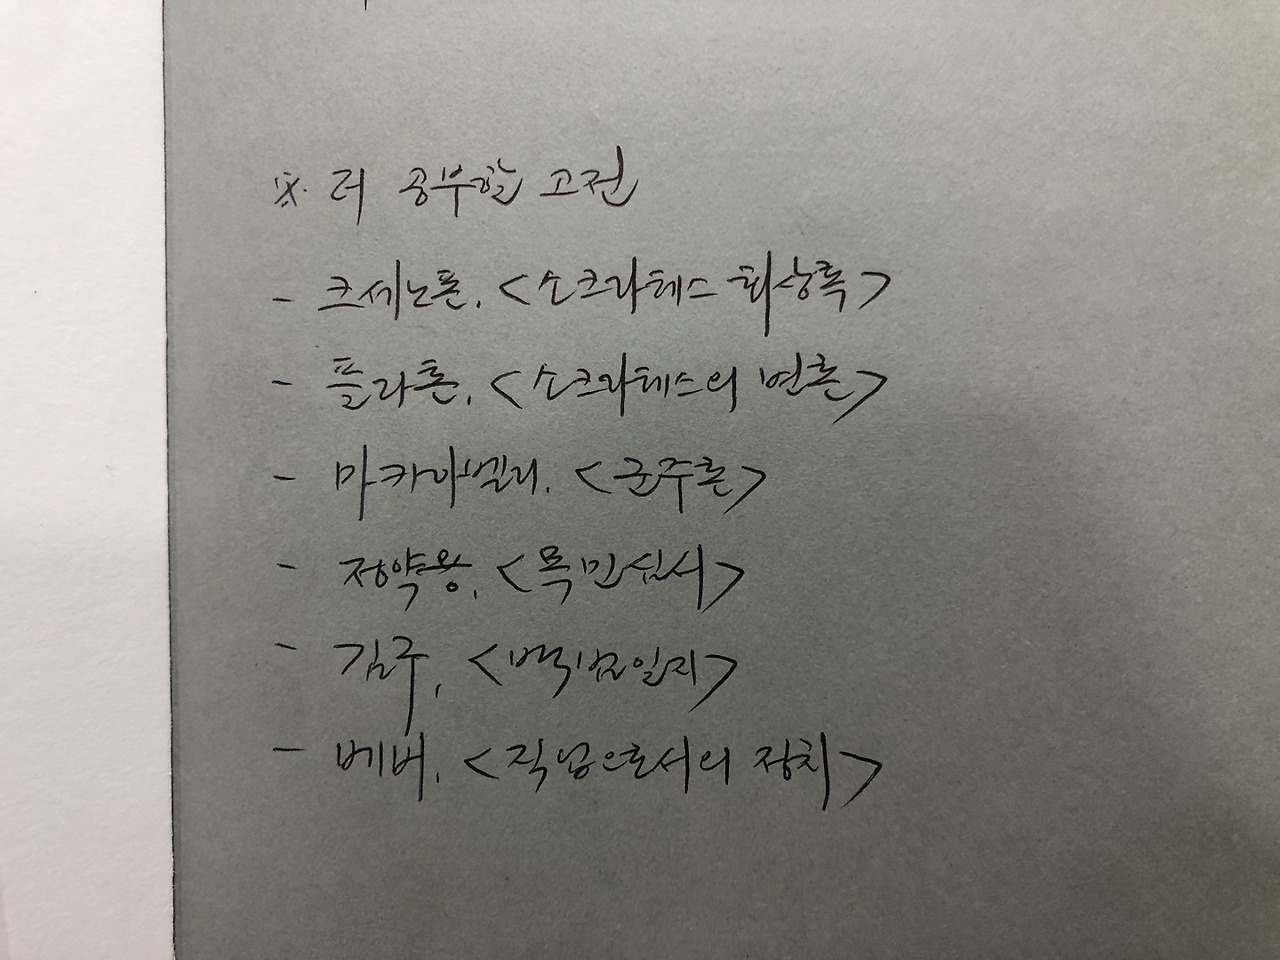 ※. 더 공부할 고전
- 크세노폰, <소크라테스 회상록>
- 플라톤, <소크라테스의 변론>
- 마키아벨리, <군주론>
- 정약용, <목민심서>
- 김구, <백범일지>
- 베버, <직업으로서의 정치>